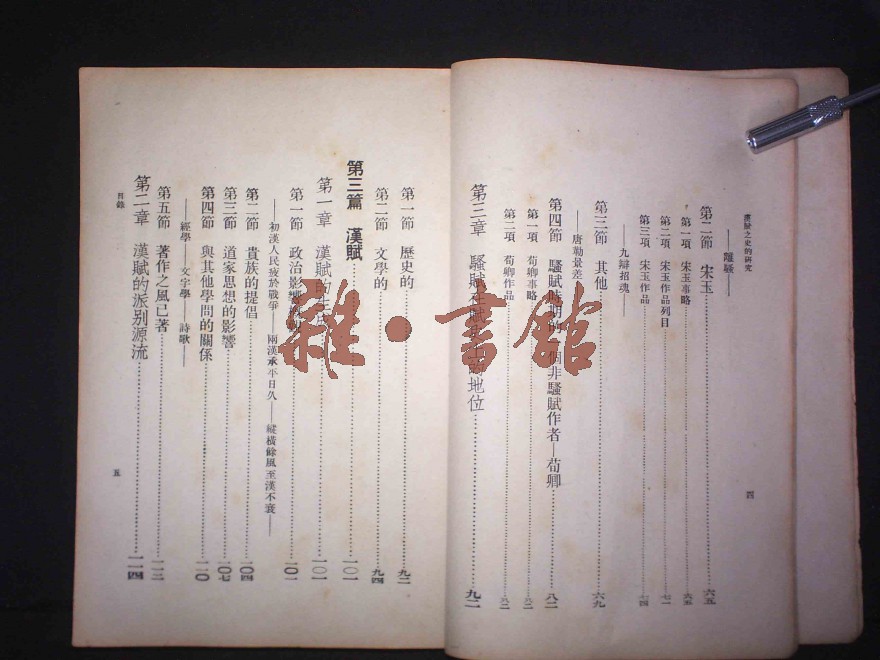 漢賦之史的研究
——離騷——
第二節　宋玉……六五
第一項　宋玉事略……六五
第二項　宋玉作品列目……七一
第三項　宋玉作品……七四
——九辯招魂——
第三節　其他……六九
——唐勒景差——
第四節　騷賦時期的一個非騷賦作者—荀卿……八二
第一項　荀卿事略……八二
第二項　荀卿作品……八二
第三章　騷賦在賦史上的地位……九二
四
第一節　歷史的……九二
第二節　文學的……九四
第三篇　漢賦……一〇一
第一章　漢賦的……一〇一
第一節　政治影響……一〇一
——初漢人民疲於戰爭——兩漢承平日久——縱橫餘風至漢不衰——
第二節　貴族的提倡……一〇四
第三節　道家思想的影響……一〇七
第四節　與其他學問的關係……一一〇
——經學——文字學——詩歌——
第五節　著作之風已著……一一二
第二章　漢賦的派別源流……一一四
目錄
五
雜·書館